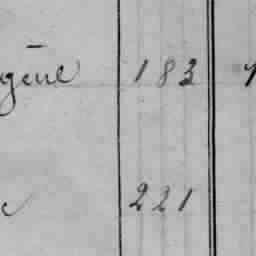 gène 183
221